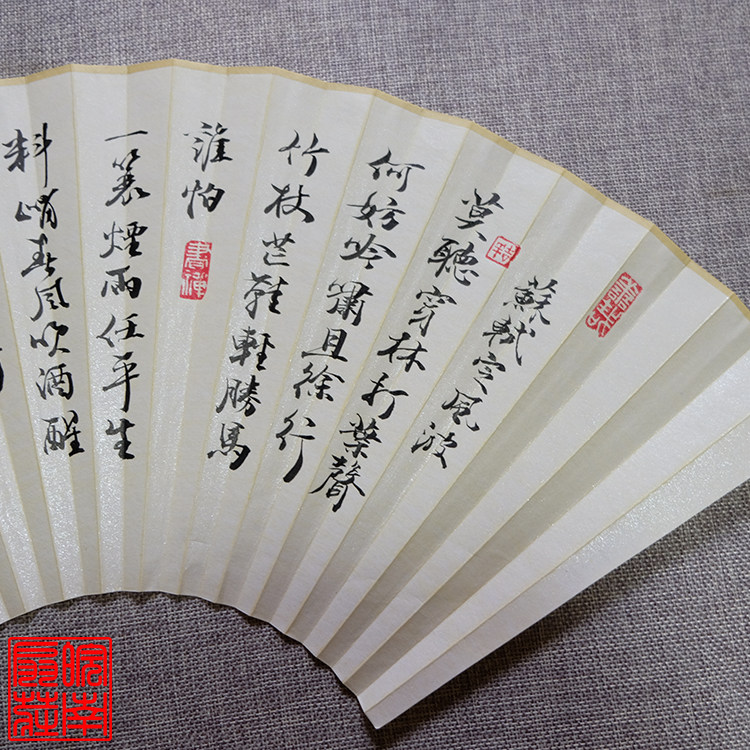 蘇軾定風波
莫聽穿林打葉聲
何妨吟嘯且徐行
竹杖芒鞋輕勝馬
誰怕
書禪
一蓑煙雨任平生
料峭春風吹酒醒
皖南